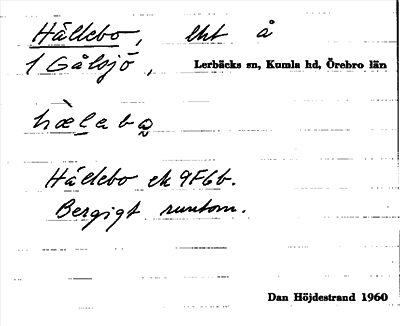 Hällebo, lht å
1 Gålsjö, Lerbäcks sn, Kumla hd, Örebro län
hæ̀lebo
Hällebo ek 9F6b.
Bergigt runtom.
Dan Höjdestrand 1960